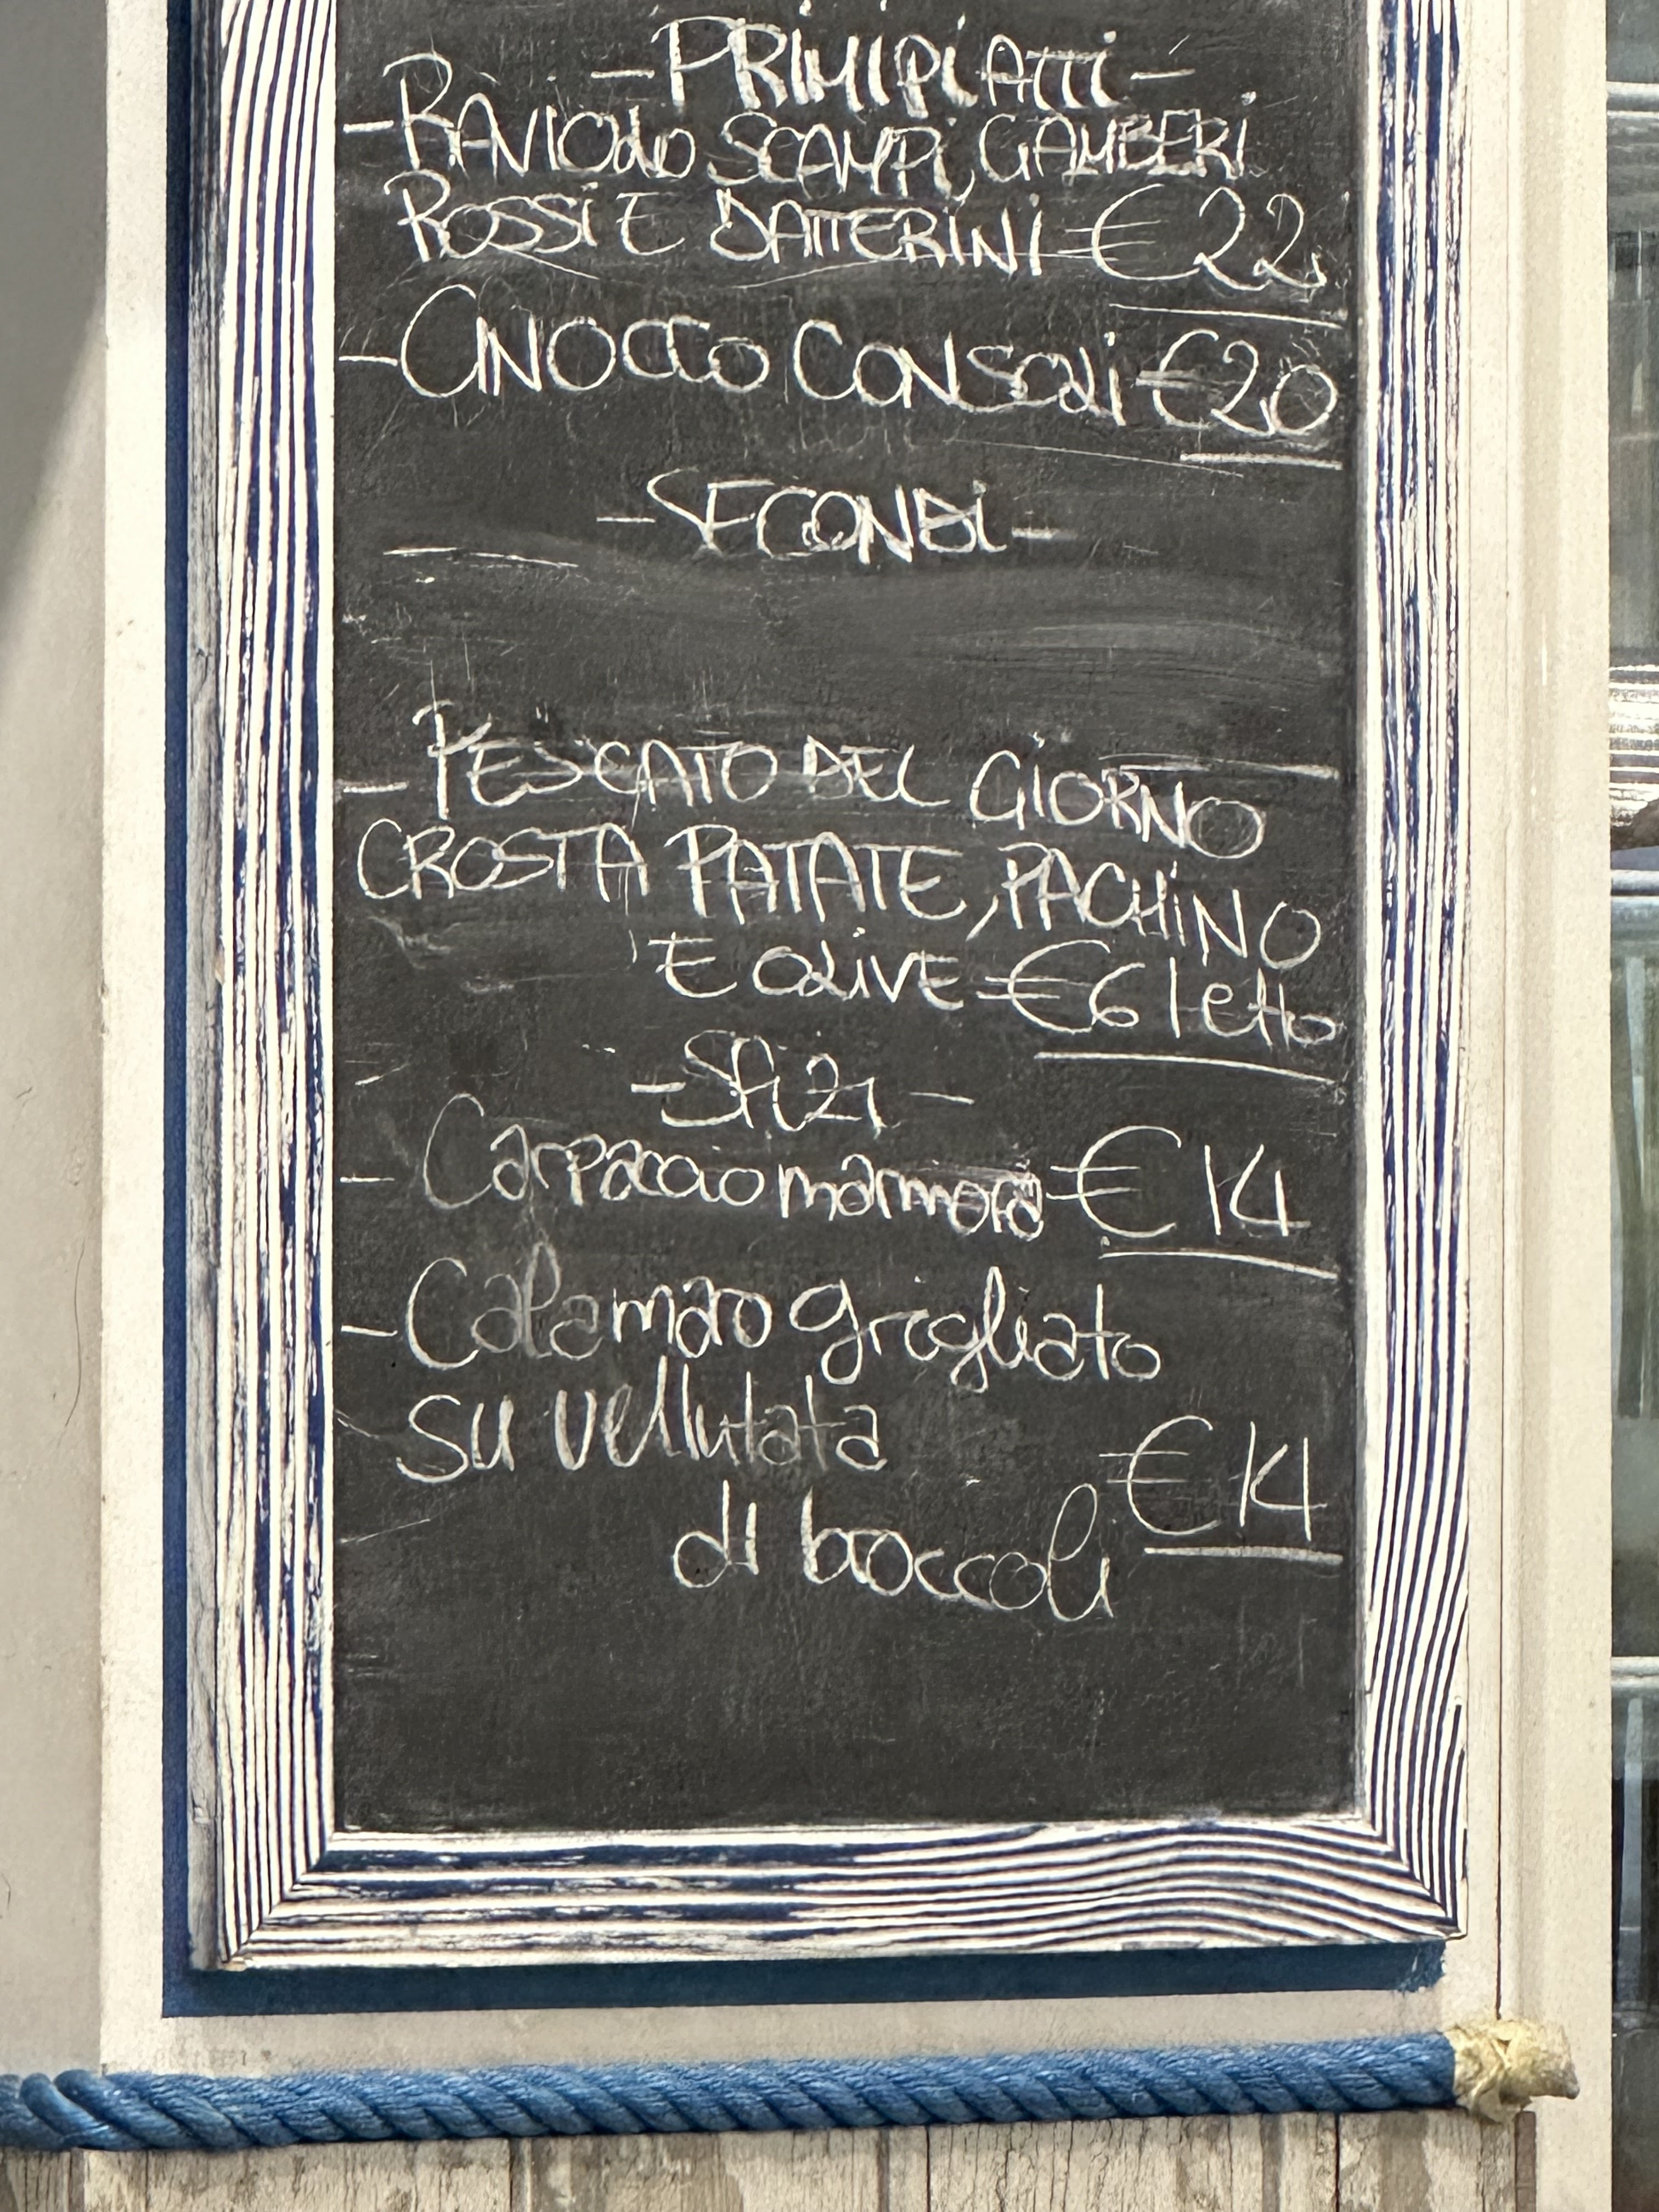 - PRIMI PIATTI -
- RAVIOLO SCAMPI, GAMBERI
ROSSI E DATTERINI € 22
- GNOCCO CONSOLI € 20
- SECONDI -
- PESCATO DEL GIORNO
CROSTA PATATE, PACHINO
E OLIVE € 6 l'etto
- Sfizi -
- Carpaccio marmora € 14
- Calamaro grigliato
su vellutata
di broccoli € 14